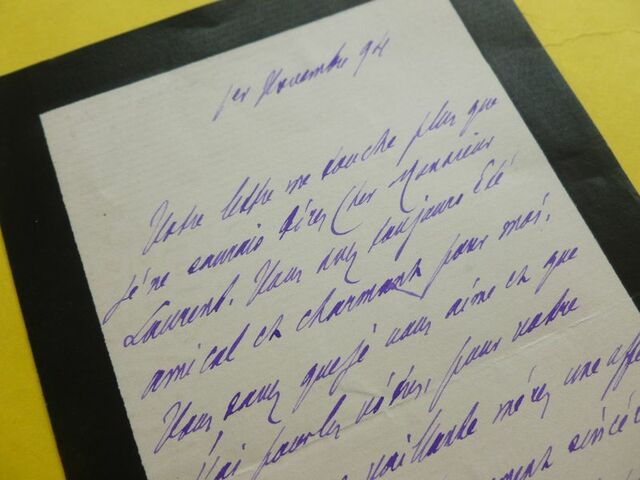 1er Novembre 94
Votre lettre me touche plus que
je ne saurais dire, Cher Monsieur
Laurent. Vous avez toujours été
amical et charmant pour moi.
Vous savez que je vous aime et que
j'ai pour les vôtres, pour votre
vaillante mère, une
sincère